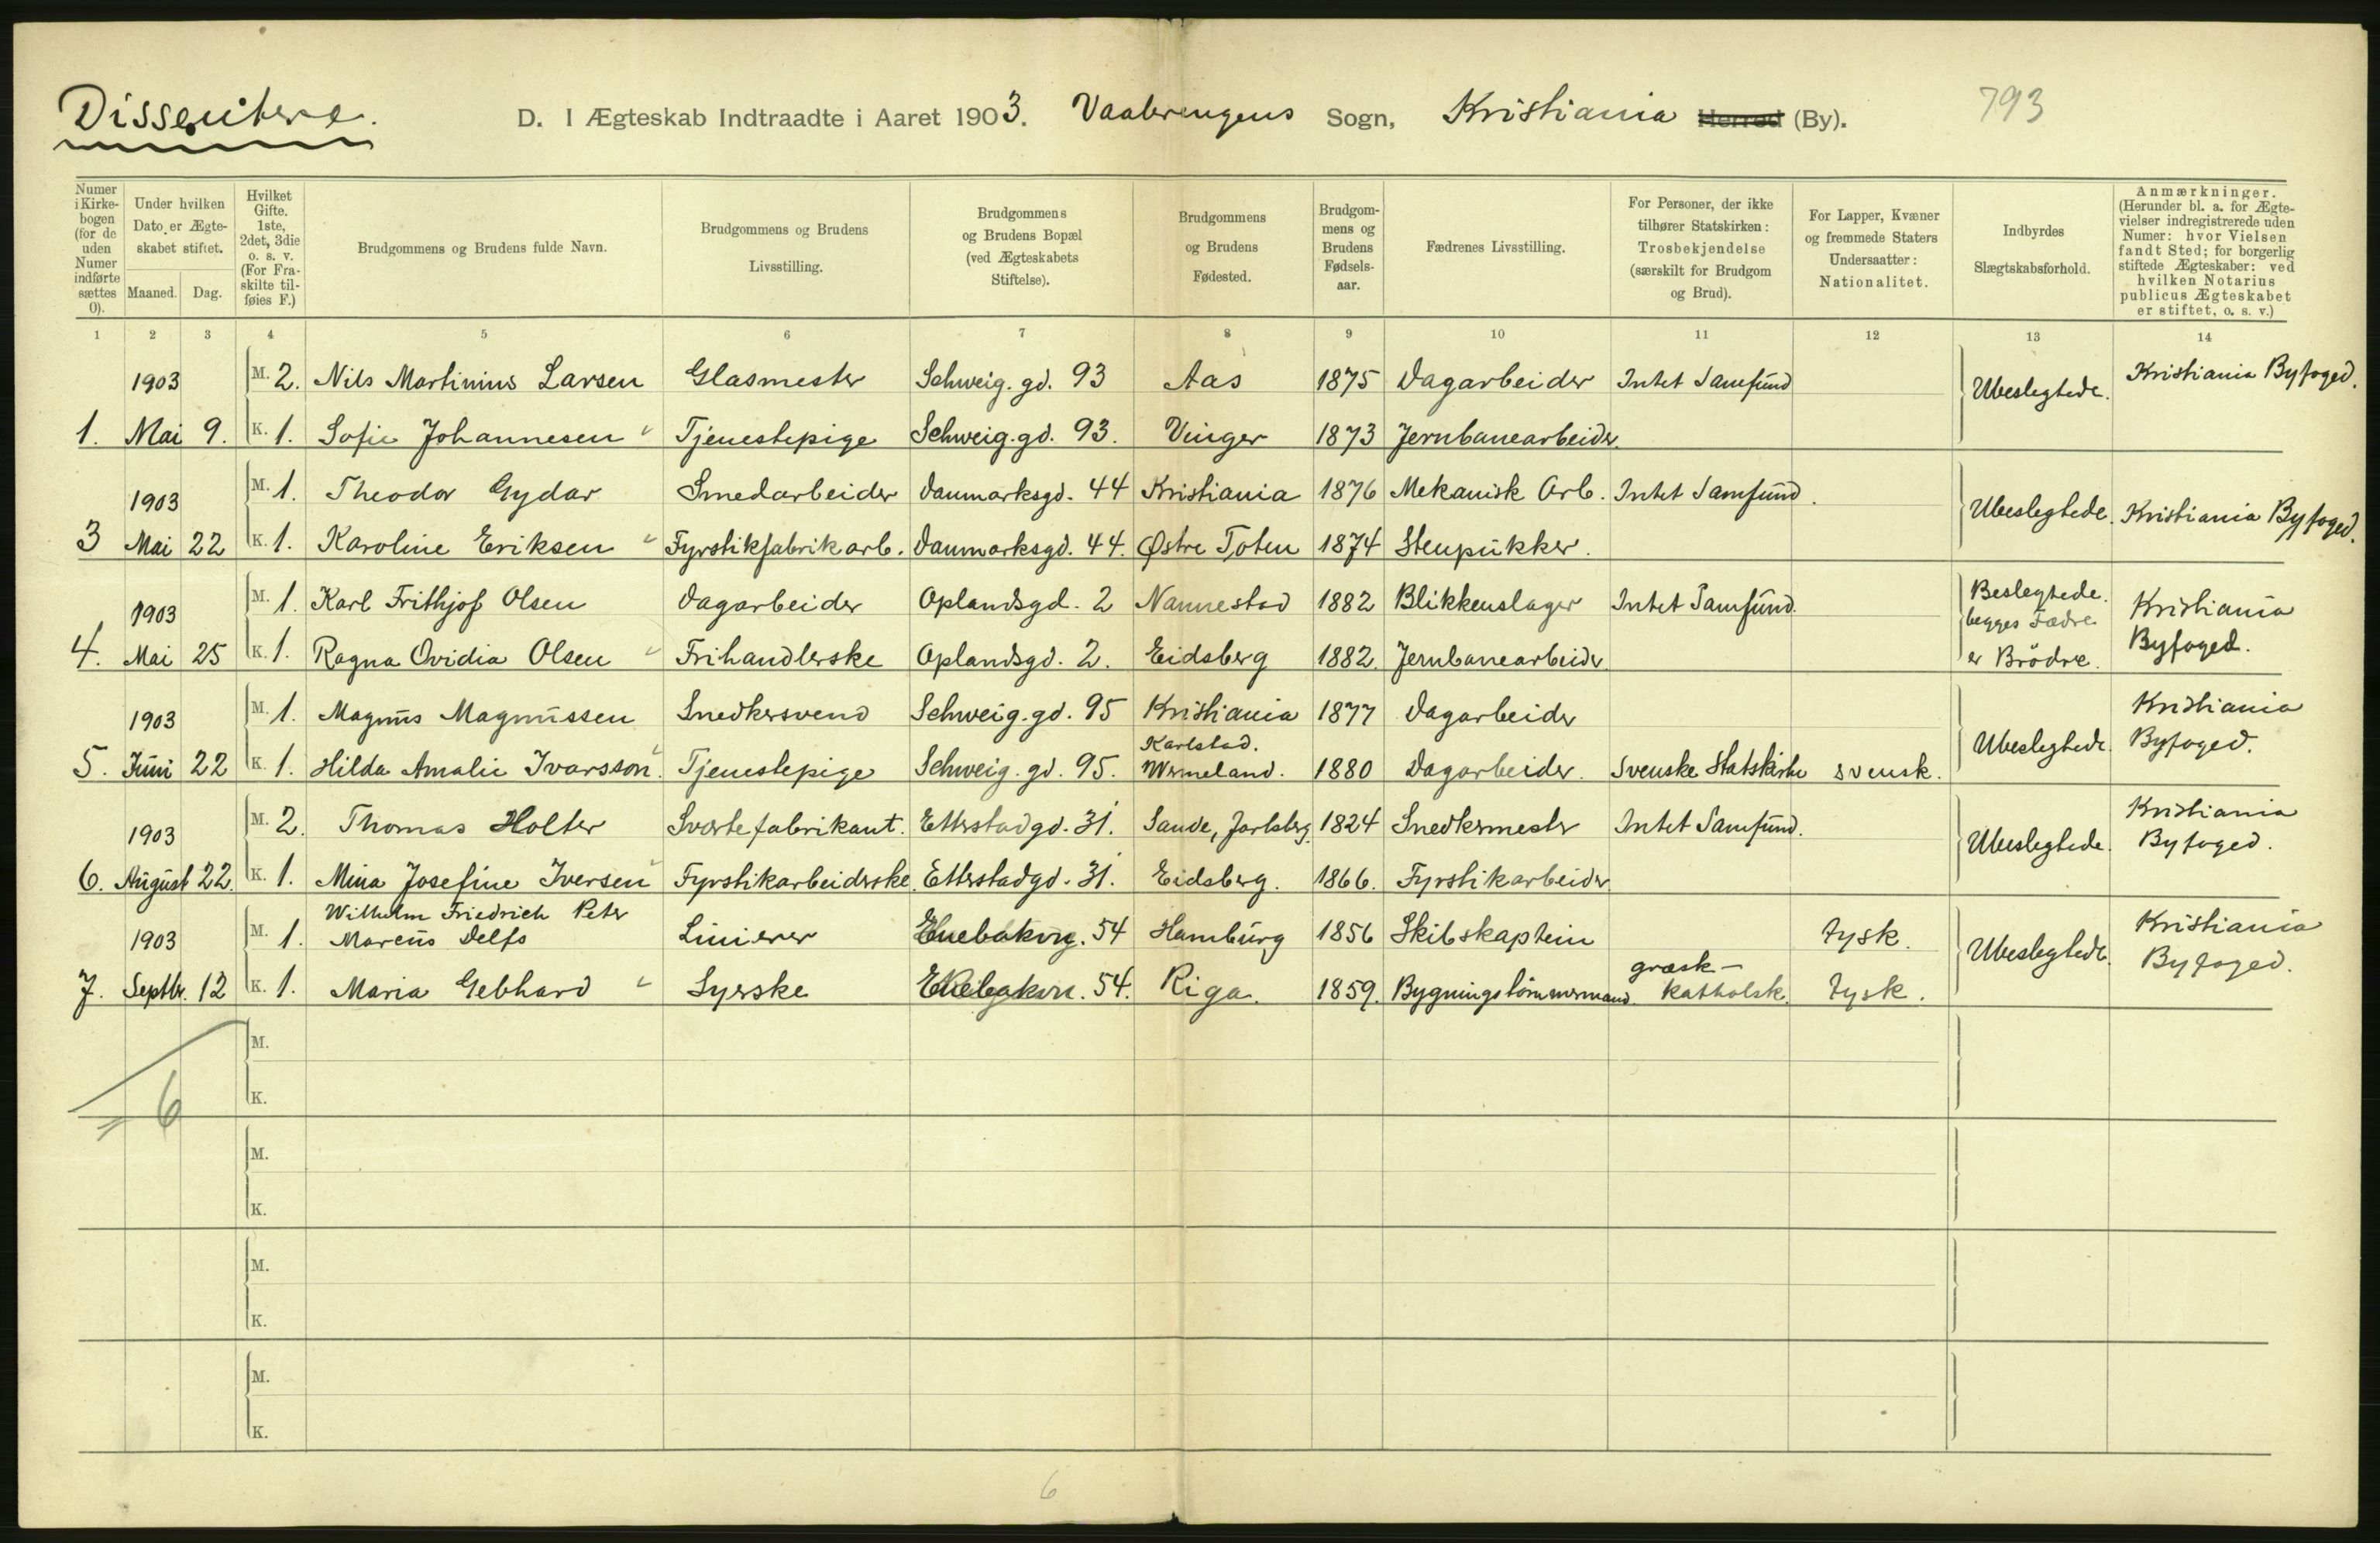 Dissentere.
D. I Ægteskab Indtraadte i Aaret 1903. Vaalerengens Sogn, Kristiania Herred (By). 793
Numer i Kirkebogen (for de uden Numer indførte sættes 0). | Under hvilken Dato er Ægteskabet stiftet. Maaned. Dag. | Hvilket Gifte. 1ste, 2det, 3die o. s. v. (For Fraskilte tilføies F.) | Brudgommens og Brudens fulde Navn. | Brudgommens og Brudens Livsstilling. | Brudgommens og Brudens Bopæl (ved Ægteskabets Stiftelse). | Brudgommens og Brudens Fødested. | Brudgommens og Brudens Fødselsaar. | Fædrenes Livsstilling. | For Personer, der ikke tilhører Statskirken: Trosbekjendelse (særskilt for Brudgom og Brud). | For Lapper, Kvæner og fremmede Staters Undersaatter: Nationalitet. | Indbyrdes Slægtskabsforhold. | Anmærkninger. (Herunder bl. a. for Ægtevielser indregistrerede uden Numer: hvor Vielsen fandt Sted; for borgerlig stiftede Ægteskaber: ved hvilken Notarius publicus Ægteskabet er stiftet, o. s. v.)
1 2 3 4 5 6 7 8 9 10 11 12 13 14
1903 M. 2. Nils Martinius Larsen Glasmester Schweig. gd. 93 Aas 1875 Dagarbeider Intet Samfund Ubeslegtede. Kristiania Byfoged.
1. Mai 9. K. 1. Sofie Johannesen Tjenestepige Schweig. gd. 93. Vinger 1873 Jernbanearbeider.
1903 M. 1. Theodor Gydar Smedarbeider Danmarksgd. 44 Kristiania 1876 Mekanisk Arb. Intet Samfund. Ubeslegtede. Kristiania Byfoged.
3 Mai 22 K. 1. Karoline Eriksen Fyrstikfabrikarb. Danmarksgd. 44. Østre Toten 1874 Stenpukker.
1903 M. 1. Karl Frithjof Olsen Dagarbeider Oplandsgd. 2 Nannestad 1882 Blikkenslager Intet Samfund. Beslegtede. begges Fædre er Brödre. Kristiania Byfoged.
4. Mai 25 K. 1. Ragna Ovidia Olsen Frihandlerske Oplandsgd. 2. Eidsberg 1882. Jernbanearbeider.
1903 M. 1. Magnus Magnussen Snedkersvend Schweig. gd. 95 Kristiania 1877 Dagarbeider Ubeslegtede. Kristiania Byfoged.
Karlstad.
5. Juni 22 K. 1. Hilda Amalie Ivarsson. Tjenestepige Schweig. gd. 95. Wermeland. 1880 Dagarbeider. Svenske Statskirke svensk.
1903 M. 2. Thomas Holter Sværtefabrikant. Etterstadgd. 31. Sande, Jarlsberg. 1824 Snedkermester Intet Samfund. Ubeslegtede. Kristiania Byfoged.
6. August 22. K. 1. Mina Josefine Iversen Fyrstikarbeiderske. Etterstadgd. 31. Eidsberg. 1866. Fyrstikarbeider
Wilhelm Friedrich Peter
1903 M. 1. Marcus Delfs Linierer 54 Hamburg 1856 Skibskaptein tysk. Ubeslegtede. Kristiania Byfoged.
græsk-
7. Septbr. 12 K. 1. Maria Gebhard Syerske 54. Riga. 1859. Bygningstömmermand. katholsk. tysk.
M.
= 6
K.
M.
K.
M.
K.
M.
K.
6